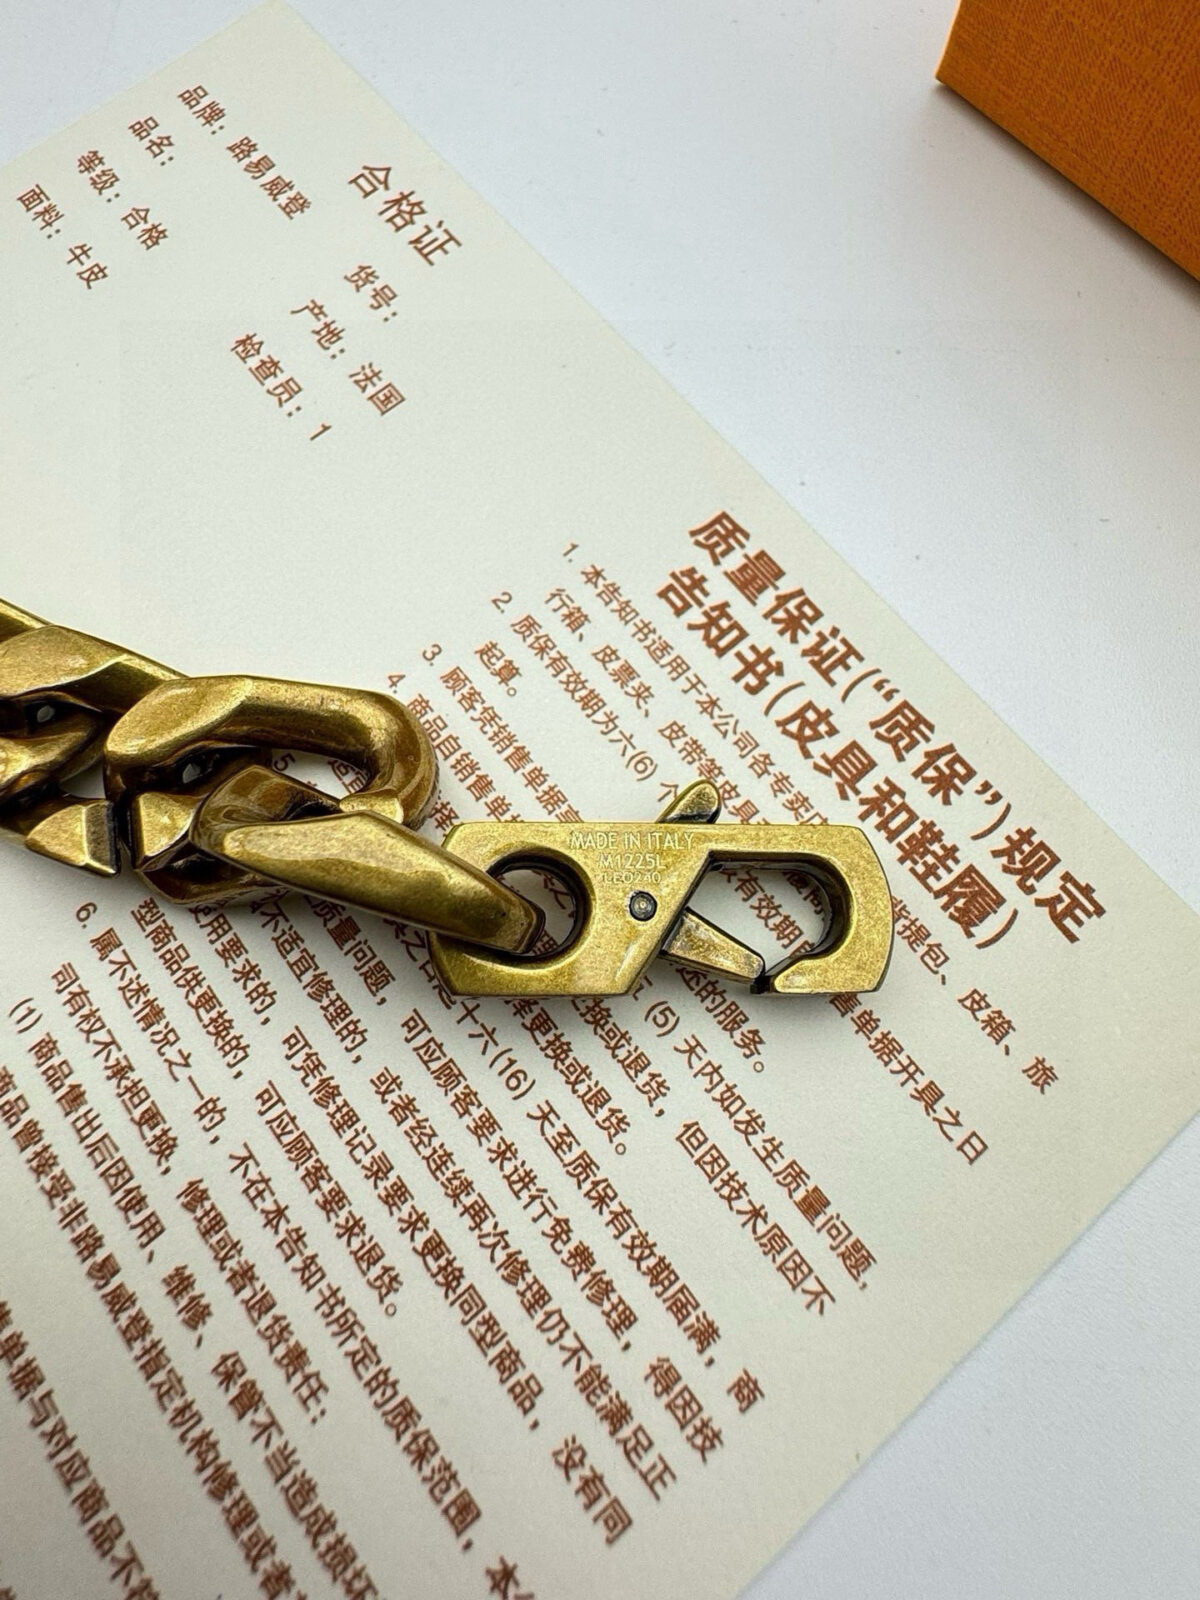 合格证
品牌：路易威登
货号：
品名：
产地：法国
等级：合格
检查员：1
面料：牛皮
质量保证(“质保”)规定
告知书(皮具和鞋履)
1. 本告知书适用于本公司各专卖店
背提包、皮箱、旅
行箱、皮票夹、皮带等皮具
2. 质保有效期为六(6) 个
售单据开具之日
起算。
3. 顾客凭销售单据
有效期
述的服务。
4. 商品自销售单据
(5) 天内如发生质量问题，
择更换或退货。
更换或退货，但因技术原因不
5
十六(16) 天至质保有效期届满，商
质量问题，可应顾客要求进行免费修理，得因技
不适宜修理的，或者经连续再次修理仍不能满足正
使用要求的，可凭修理记录要求更换同型商品，没有同
型商品供更换的，可应顾客要求退货。
6. 属下述情况之一的，不在本告知书所定的质保范围，本
司有权不承担更换，修理或者退货责任：
(1) 商品售出后因使用、维修、保管不当造成损坏
商品曾接受非路易威登指定机构修理或者
售单据与对应商品不符
MADE IN ITALY
M1225L
LEO240